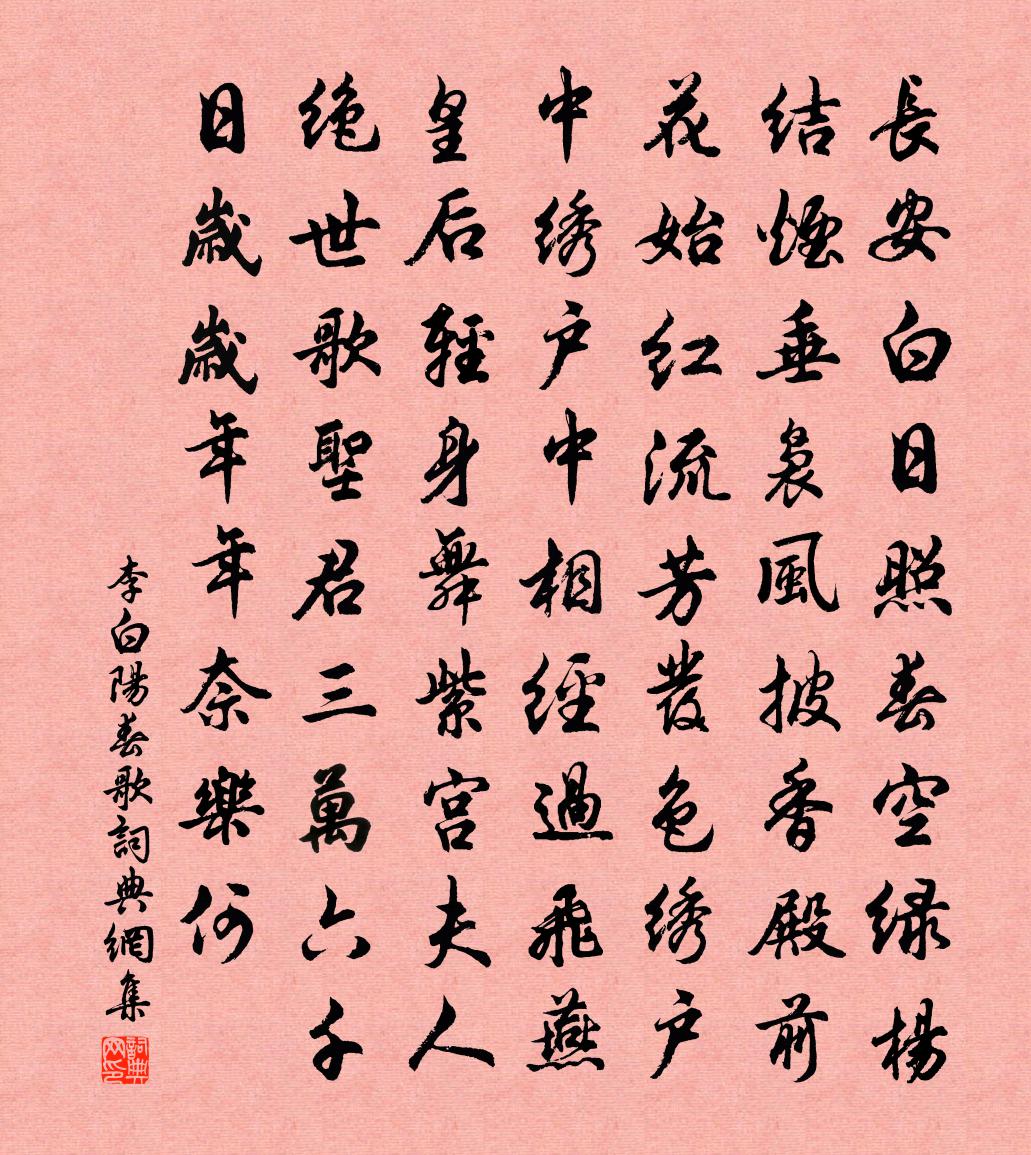 長安白日照春空綠楊
結煙垂裊風披香殿前
花始紅流芳發色綉户
中綉户中相經過飛燕
皇后輕身舞紫宫夫人
絶世歌聖君三萬六千
日歲歲年年奈樂何
李白陽春歌詞典網集
詞典网印